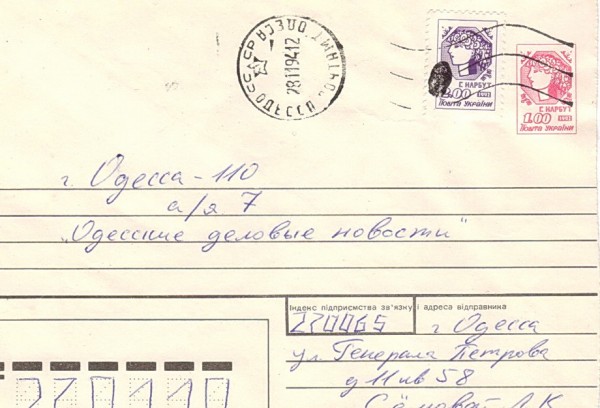 ОДЕССА
28 11 94 12
С. НАРБУТ
2.00 1992
Пошта України
С. НАРБУТ
1.00 1992
Пошта України
г. Одесса-110
а/я 7
„Одесские деловые новости"
Індекс підприємства зв'язку і адреса відправника
270065 г Одесса
ул. Генерала Петрова
д 11 кв 58
270110